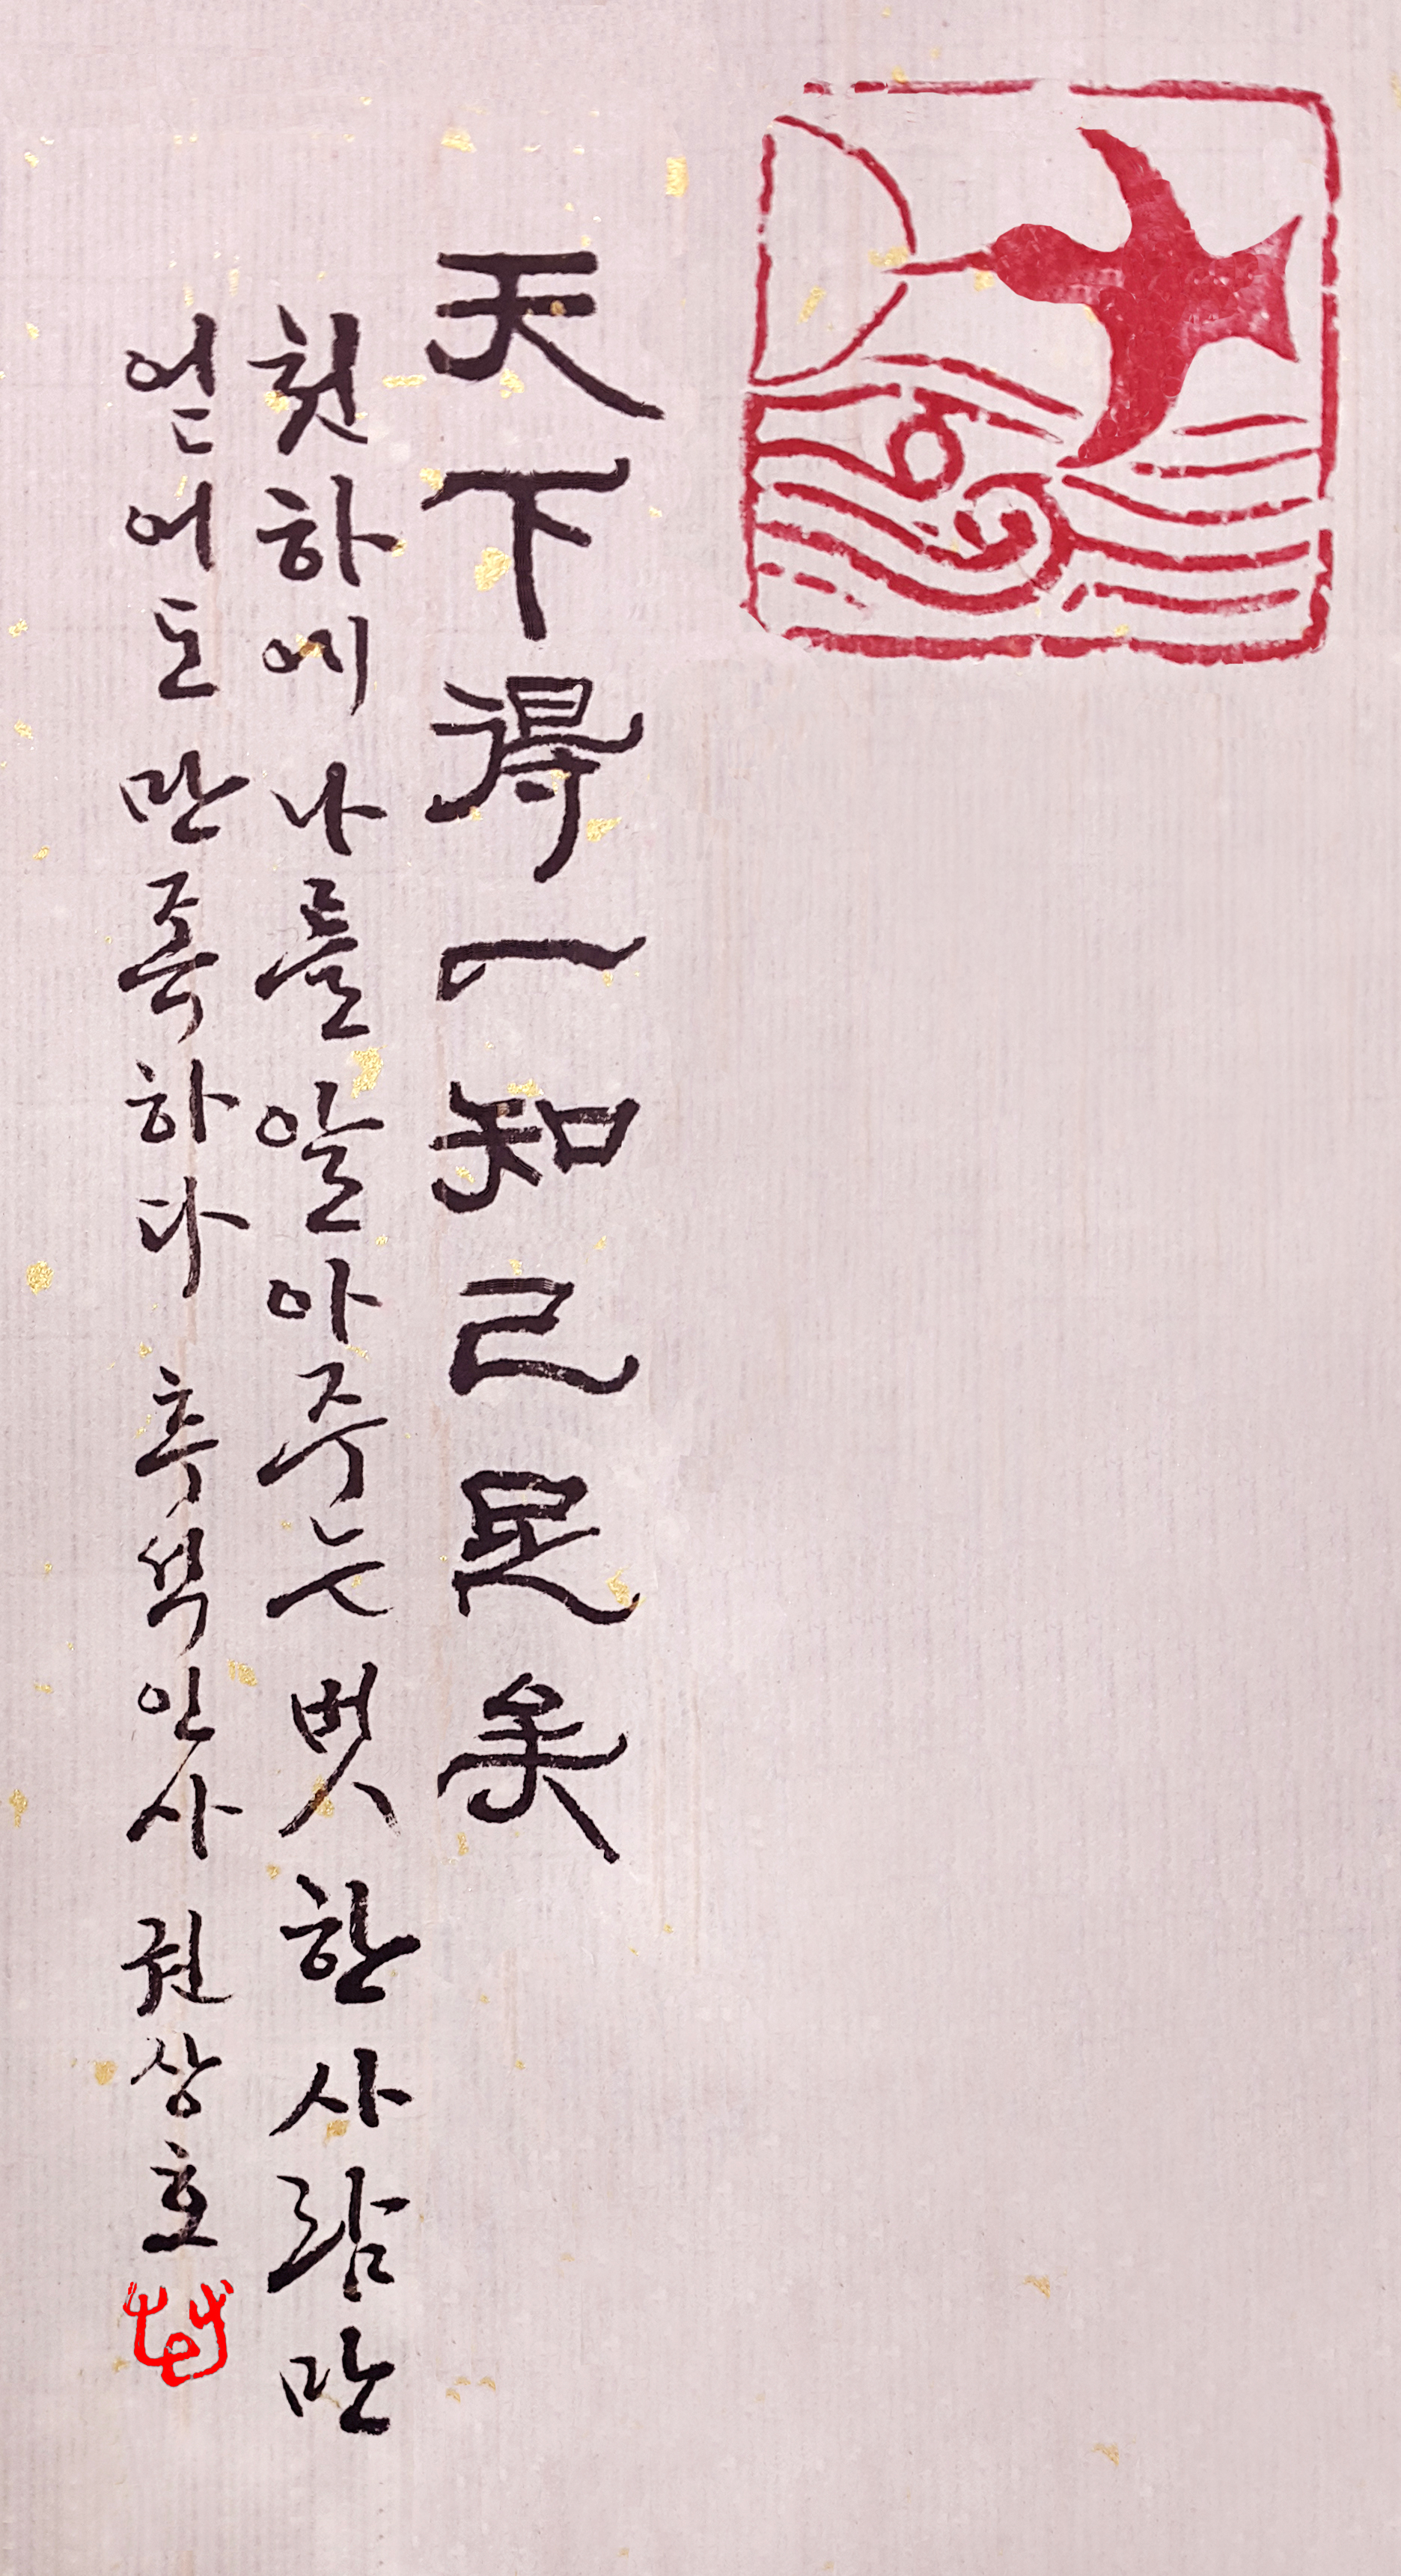 天下得一知己足矣
천하에 나를 알아주는 벗 한 사람만
얻어도 만족하다 흑백인사 권상호